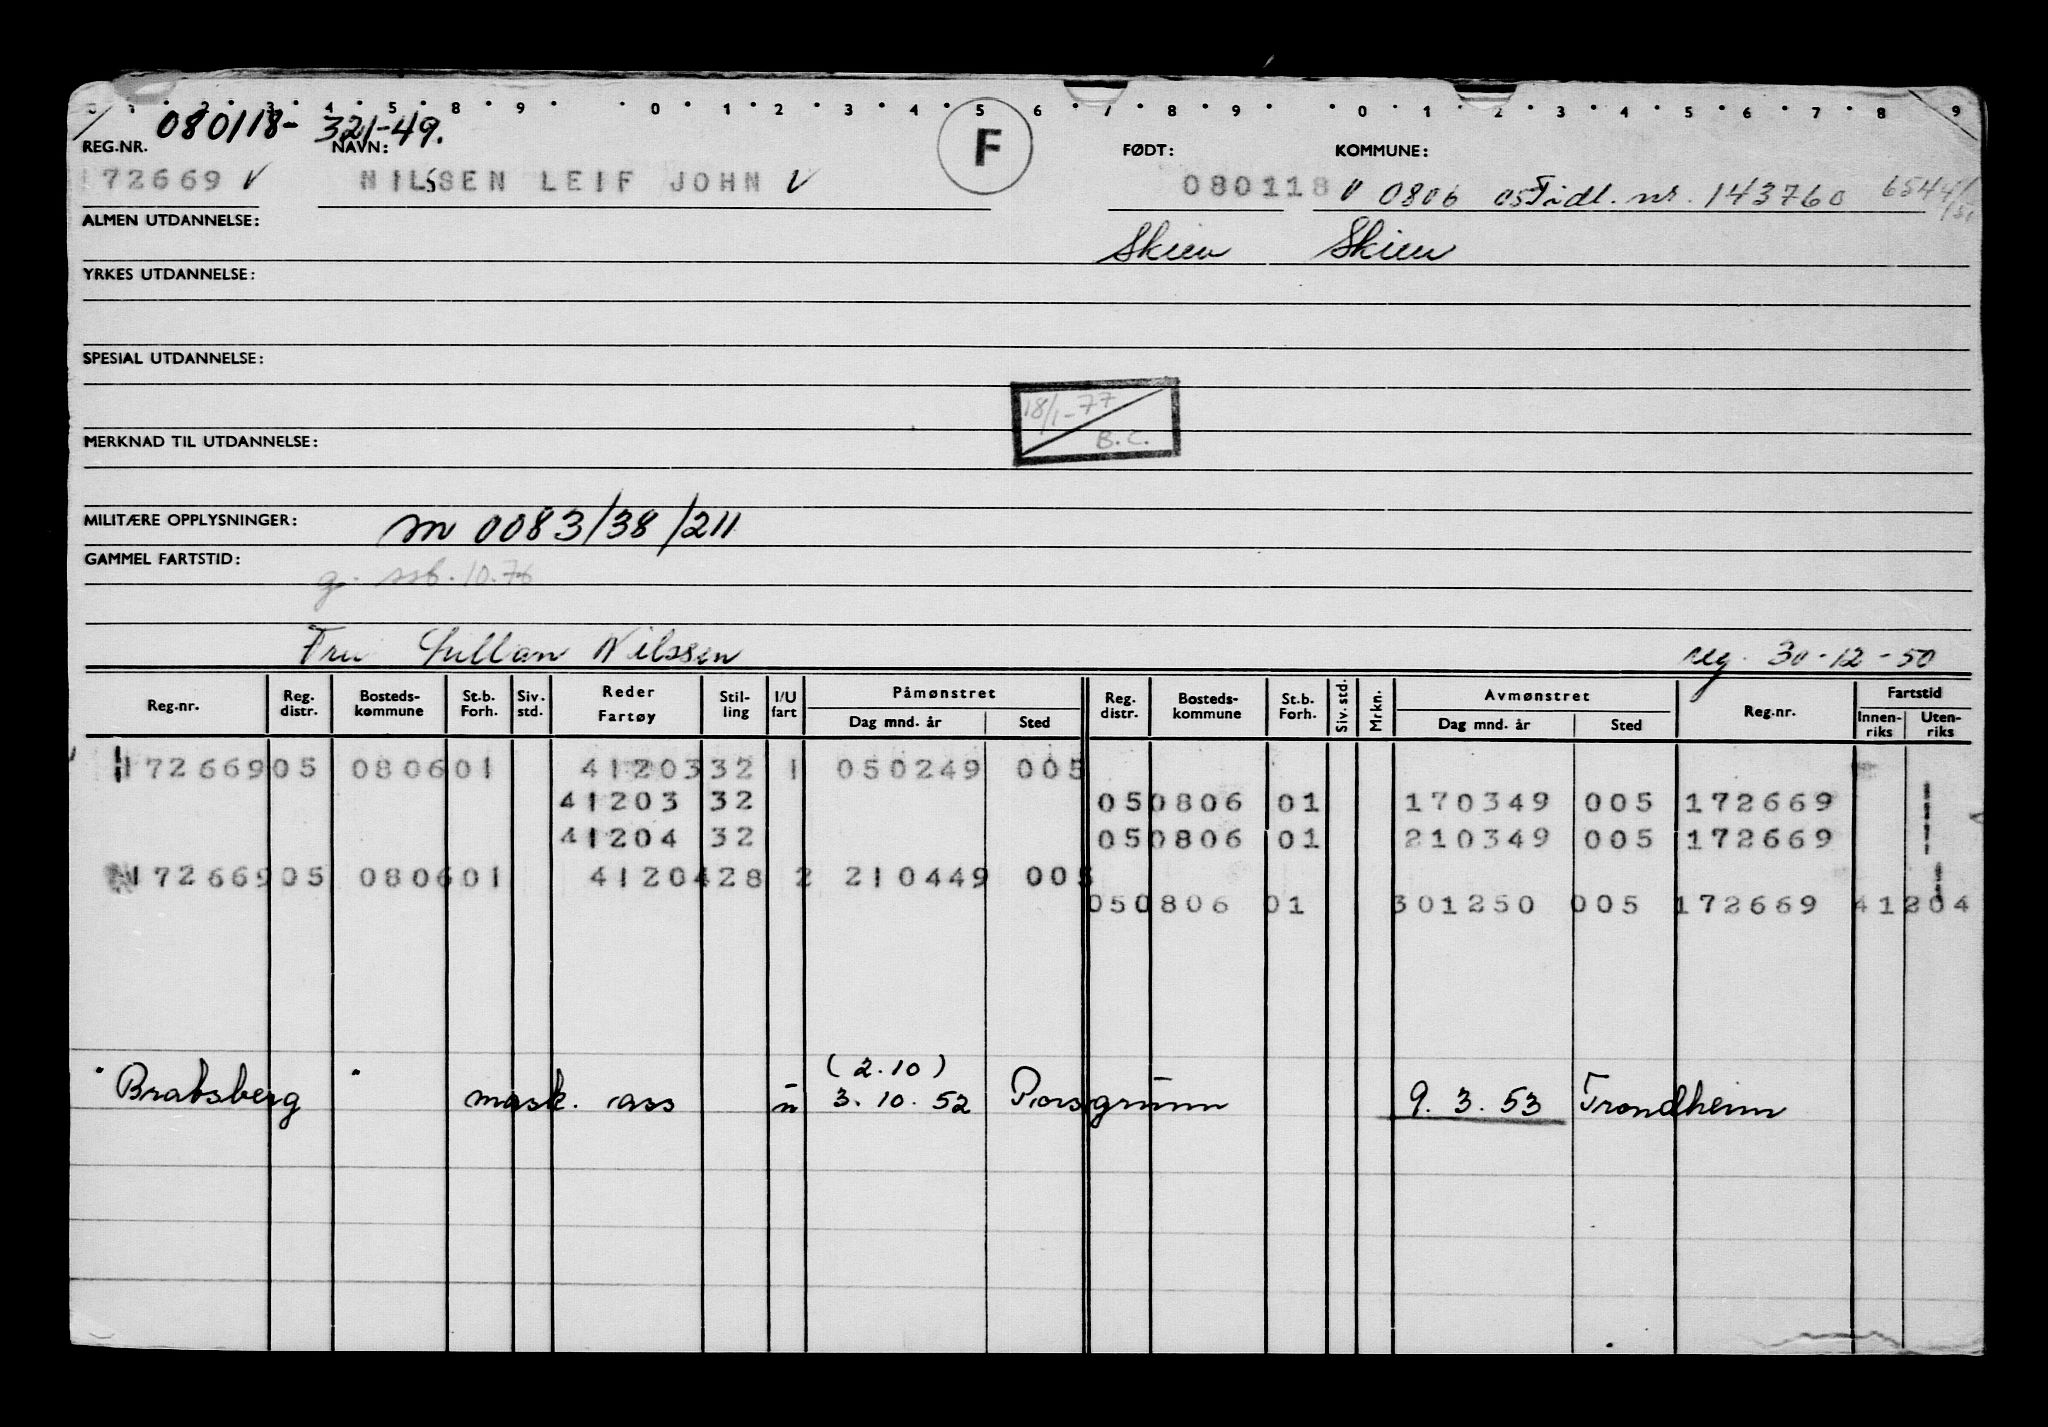 0 1 2 3 4 5 8 9 0 1 2 3 4 5 6 7 8 9 0 1 2 3 4 5 6 7 8 9
080118- 321-49.
REG.NR. NAVN: F FØDT: KOMMUNE:
172669 V NILSSEN LEIF JOHN V 080118 V 0806 05 Tidl. nr. 143760 6544/51
ALMEN UTDANNELSE: Skien Skien
YRKES UTDANNELSE:
SPESIAL UTDANNELSE:
18/1-77
B.C.
MERKNAD TIL UTDANNELSE:
MILITÆRE OPPLYSNINGER: m 0083/38/211
GAMMEL FARTSTID:
g. ssb. 10.76
Fru Lullan Nilssen reg. 30-12-50
Reg.nr. Reg. distr. Bosteds-kommune St.b. Forh. Siv. std. Reder Fartøy Stil-ling I/U fart Påmønstret Dag mnd. år Sted Reg. distr. Bosteds-kommune St.b. Forh. Siv. std. Mrkn. Avmønstret Dag mnd. år Sted Reg.nr. Fartstid Innen-riks Uten-riks
172669 05 0806 01 41203 32 1 050249 005
41203 32 05 0806 01 170349 005 172669
41204 32 05 0806 01 210349 005 172669
172669 05 0806 01 41204 28 2 210449 005
05 0806 01 301250 005 172669 41204
(2.10)
"Bratsberg" mask. ass u 3.10.52 Porsgrunn 9.3.53 Trondheim